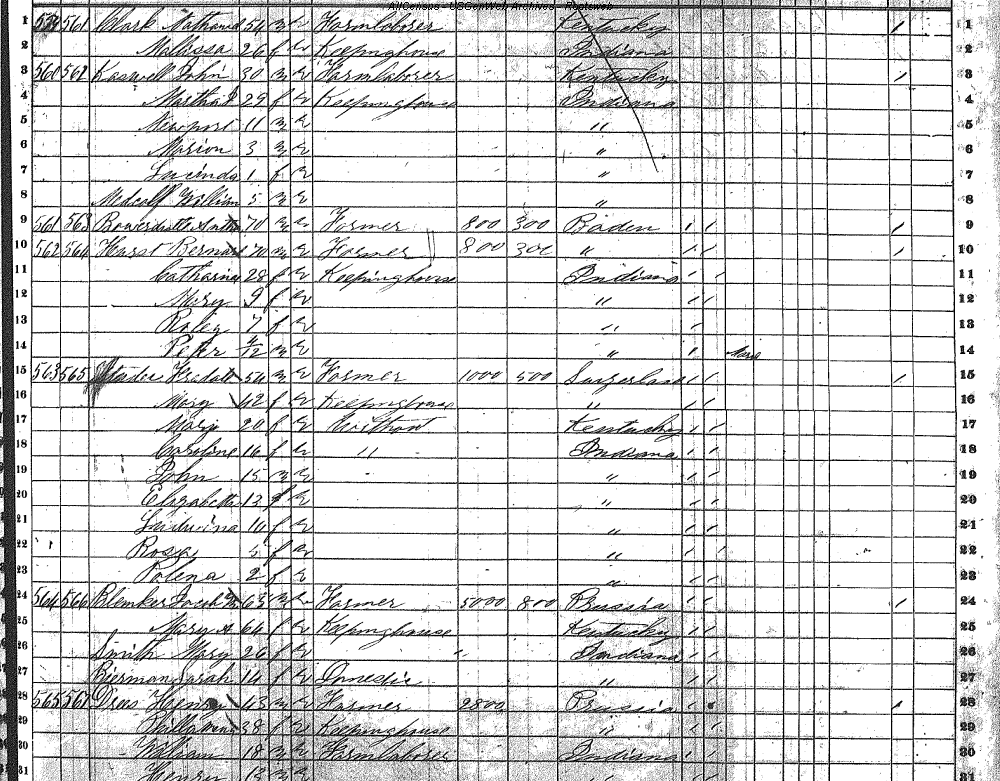 AllCensus - USGenWeb Archives - Rootsweb
1 561 Clark 54 m w Farmlaborer Kentucky 1 1
2 Malissa 26 f w Keepinghouse Indiana 2
3 560 562 Kaswell John 30 m w Farmlaborer Kentucky 1 3
4 Martha 29 f w Keepinghouse Indiana 4
5 Newport 11 m w " 5
6 Marion 3 m w " 6
7 Lucinda 1 f w " 7
8 Metcalf William 5 m w " 8
9 561 563 70 m w Farmer 800 300 Baden 1 1 1 9
10 562 564 Harst Bernard 70 m w Farmer 800 300 " 1 1 1 10
11 Catharine 28 f w Keepinghouse Indiana 1 1 11
12 Mary 9 f w " 1 1 12
13 Raley 7 f w " 1 1 13
14 Peter 4/12 m w " 1 14
15 563 565 54 m w Farmer 1000 500 Swizerland 1 1 1 15
16 Mary 42 f w Keepinghouse " 1 1 16
17 Mary 20 f w Without Kentucky 1 1 17
18 Caroline 16 f w " Indiana 1 1 18
19 John 15 m w " 1 1 19
20 Elizabeth 13 f w " 1 1 20
21 10 f w " 1 1 21
22 Rosa 5 f w " 1 1 22
23 Polena 2 f w " 1 1 23
24 564 566 Blemker Jacob 63 m w Farmer 5000 800 Prussia 1 1 1 24
25 Mary A 66 f w Keepinghouse Kentucky 1 1 25
26 Smith Mary 26 f w " Indiana 1 1 26
27 Bierman Sarah 14 f w " 1 1 27
28 565 567 Drees Henry 43 m w Farmer 2800 Prussia 1 1 28
29 38 f w Keepinghouse " 29
30 William 18 m w Farmlaborer Indiana 30
31 Henry m w 31